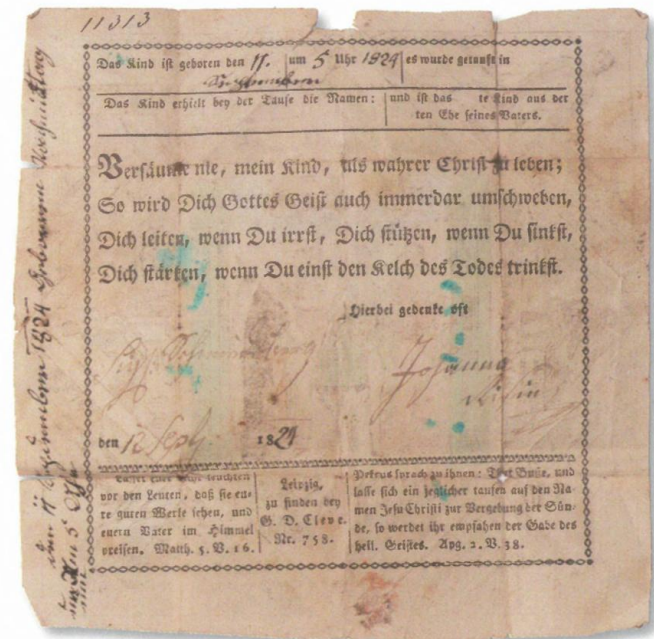 11313
Das Kind ist geboren den 11. um 5 Uhr 1824 es wurde getauft in
Septembere
Das Kind erhielt bey der Taufe die Namen: und ist das te Kind aus der
ten Ehe seines Vaters.
Versäume nie, mein Kind, als wahrer Christ zu leben;
So wird Dich Gottes Geist auch immerdar umschweben,
Dich leiten, wenn Du irrst, Dich stützen, wenn Du sinkst,
Dich stärken, wenn Du einst den Kelch des Todes trinkst.
Hierbei gedenke oft
Johanna
den 12 Sept. 1824
Lasset euer Licht leuchten
vor den Leuten, daß sie eu-
re guten Werke sehen, und
euern Vater im Himmel
preisen. Matth. 5. V. 16.
Leipzig,
zu finden bey
G. D. Cleve.
Nr. 758.
Petrus sprach zu ihnen: Thut Buße, und
lasse sich ein jeglicher taufen auf den Na-
men Jesu Christi zur Vergebung der Sün-
de, so werdet ihr empfahen der Gabe des
heil. Geistes. Apg. 2. V. 38.
11 1824
5